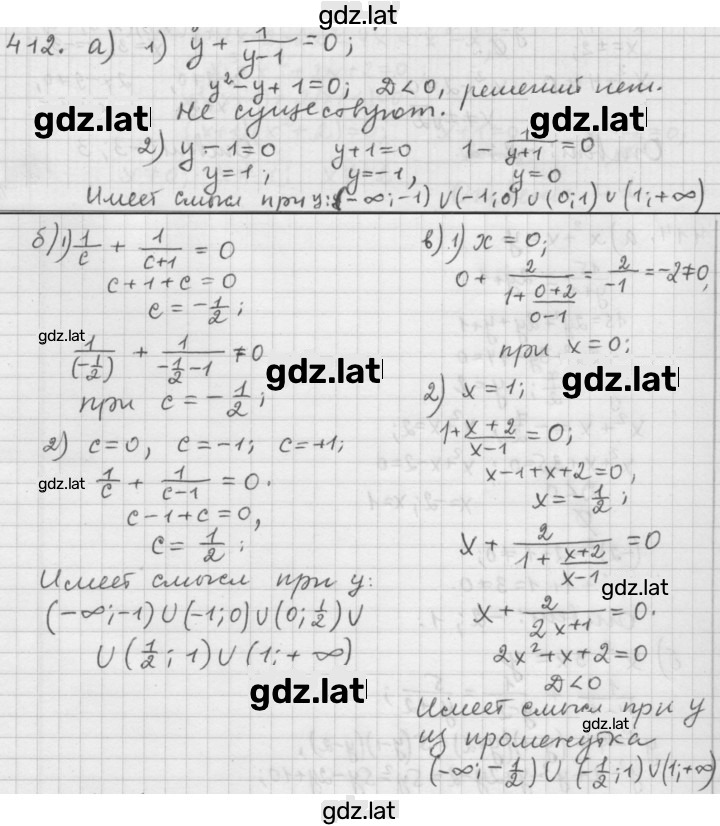 gdz.lat
412. а) 1) y + 1/(y-1) = 0;
y² - y + 1 = 0; D < 0, решений нет.
Не существуют.
gdz.lat gdz.lat
2) y - 1 = 0 y + 1 = 0 1 - 1/(y+1) = 0
y = 1; y = -1, y = 0
Имеет смысл при y: (-∞; -1) ∪ (-1; 0) ∪ (0; 1) ∪ (1; +∞)
б) 1) 1/c + 1/(c+1) = 0
c + 1 + c = 0
c = -1/2;
gdz.lat
1/(-1/2) + 1/(-1/2 - 1) ≠ 0
gdz.lat
при c = -1/2;
2) c = 0, c = -1; c = +1;
gdz.lat
1/c + 1/(c-1) = 0.
c - 1 + c = 0,
c = 1/2;
Имеет смысл при y:
(-∞; -1) ∪ (-1; 0) ∪ (0; 1/2) ∪
∪ (1/2; 1) ∪ (1; +∞)
gdz.lat
в) 1) x = 0;
0 + 2/(1 + (0+2)/(0-1)) = 2/(-1) = -2 ≠ 0,
при x = 0;
gdz.lat
2) x = 1;
1 + (x+2)/(x-1) = 0;
x - 1 + x + 2 = 0,
x = -1/2;
x + 2/(1 + (x+2)/(x-1)) = 0
gdz.lat
x + 2/(2x+1) = 0.
2x² + x + 2 = 0
D < 0
Имеет смысл при y
gdz.lat
из промежутка
(-∞; -1/2) ∪ (-1/2; 1) ∪ (1; +∞)
gdz.lat